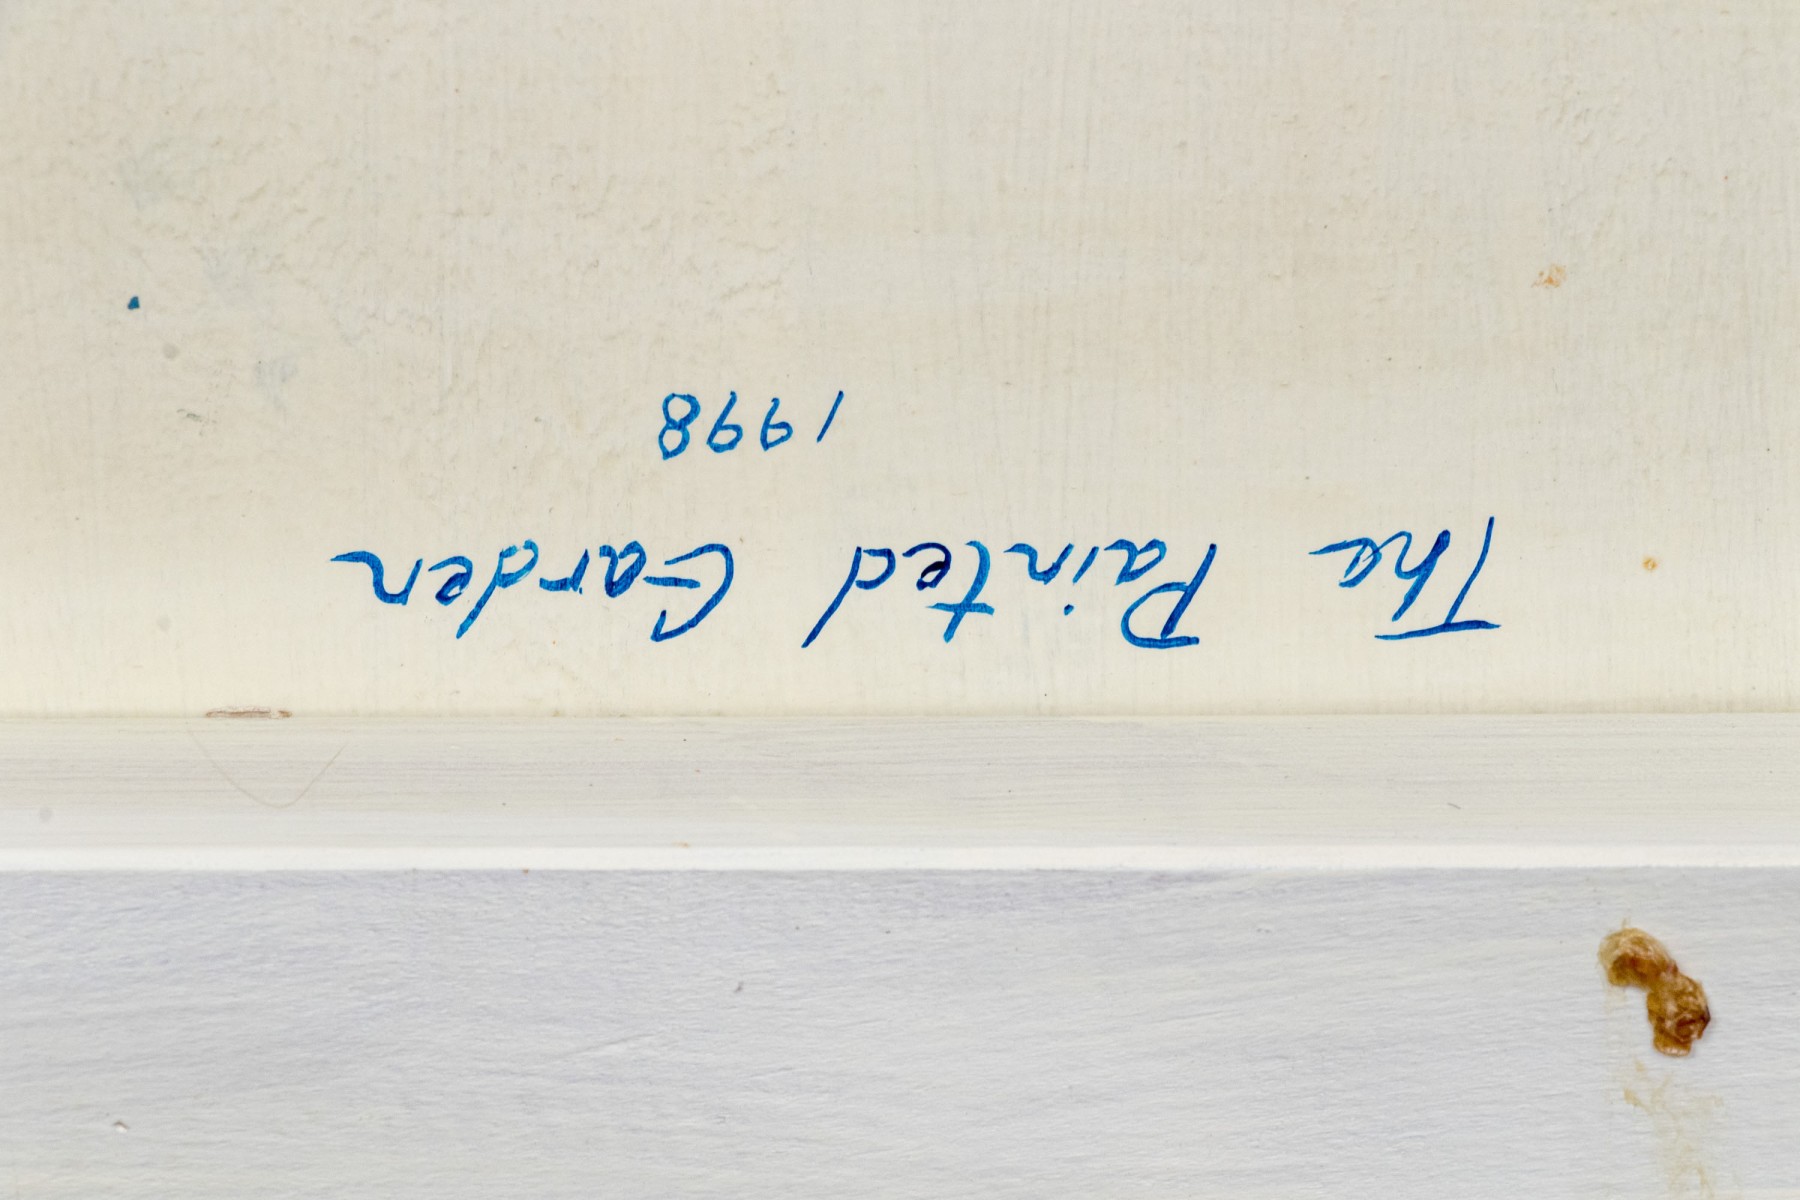 The Painted Garden
1998